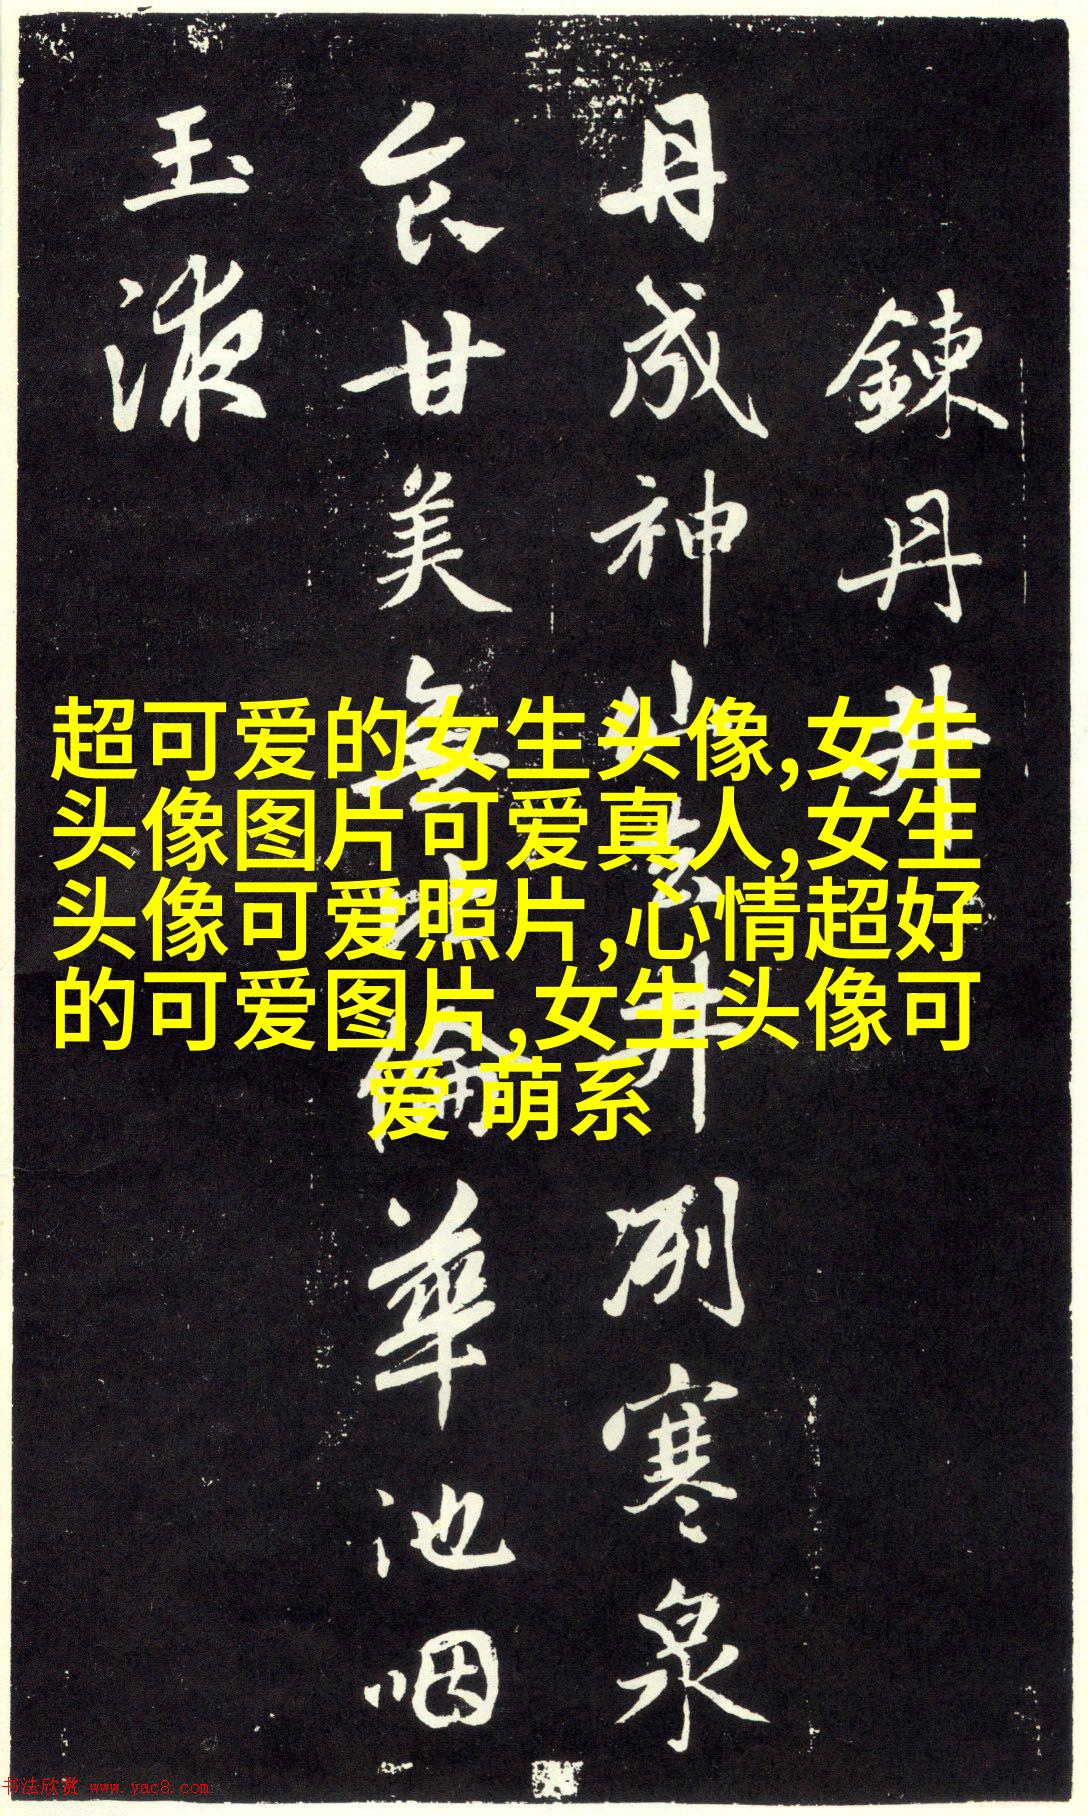 鍊丹井
丹成神
井冽寒泉
食甘美無
華池咽
玉液
超可爱的女生头像,女生
头像图片可爱真人,女生
头像可爱照片,心情超好
的可爱图片,女生头像可
爱 萌系
书法欣赏 www.yac8.com